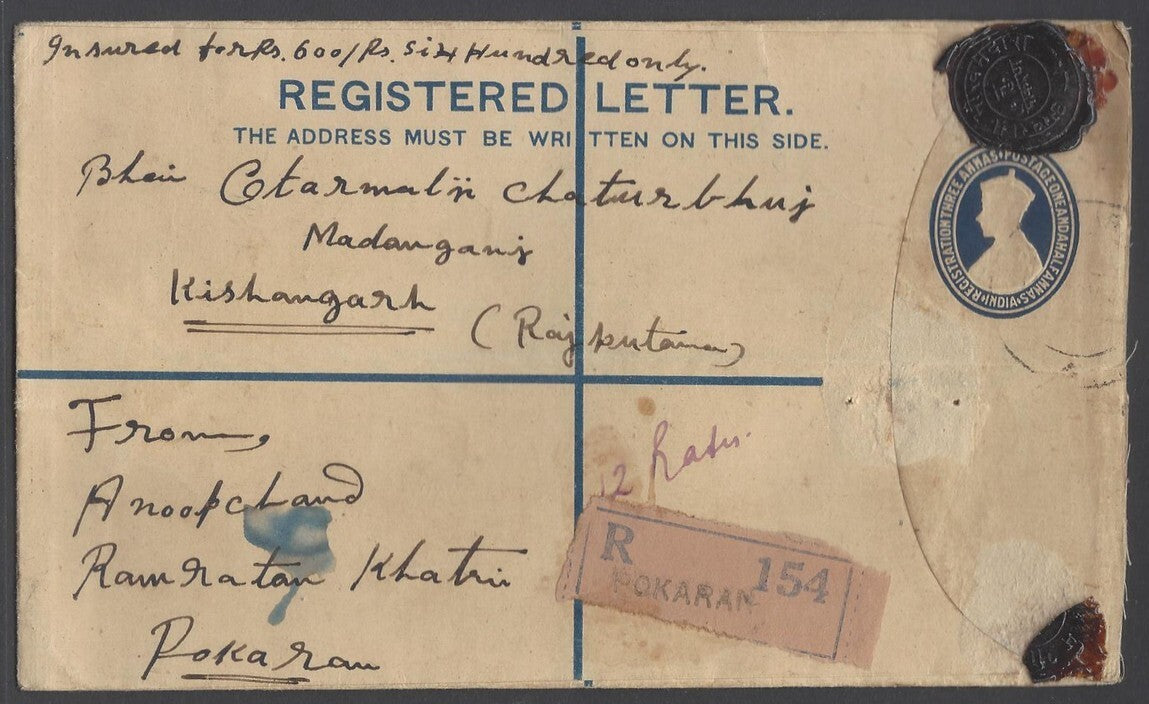 Insured for Rs. 600/Rs. Six Hundred only.
REGISTERED LETTER.
THE ADDRESS MUST BE WRITTEN ON THIS SIDE.
REGISTRATION THREE ANNAS · POSTAGE ONE AND A HALF ANNAS · INDIA
Bhai Otarmalji Chaturbhuj
Madanganj
Kishangarh
(Rajputana)
From,
Anoopchand
Ramratan Khatri
Pokaran
12
R
154
POKARAN